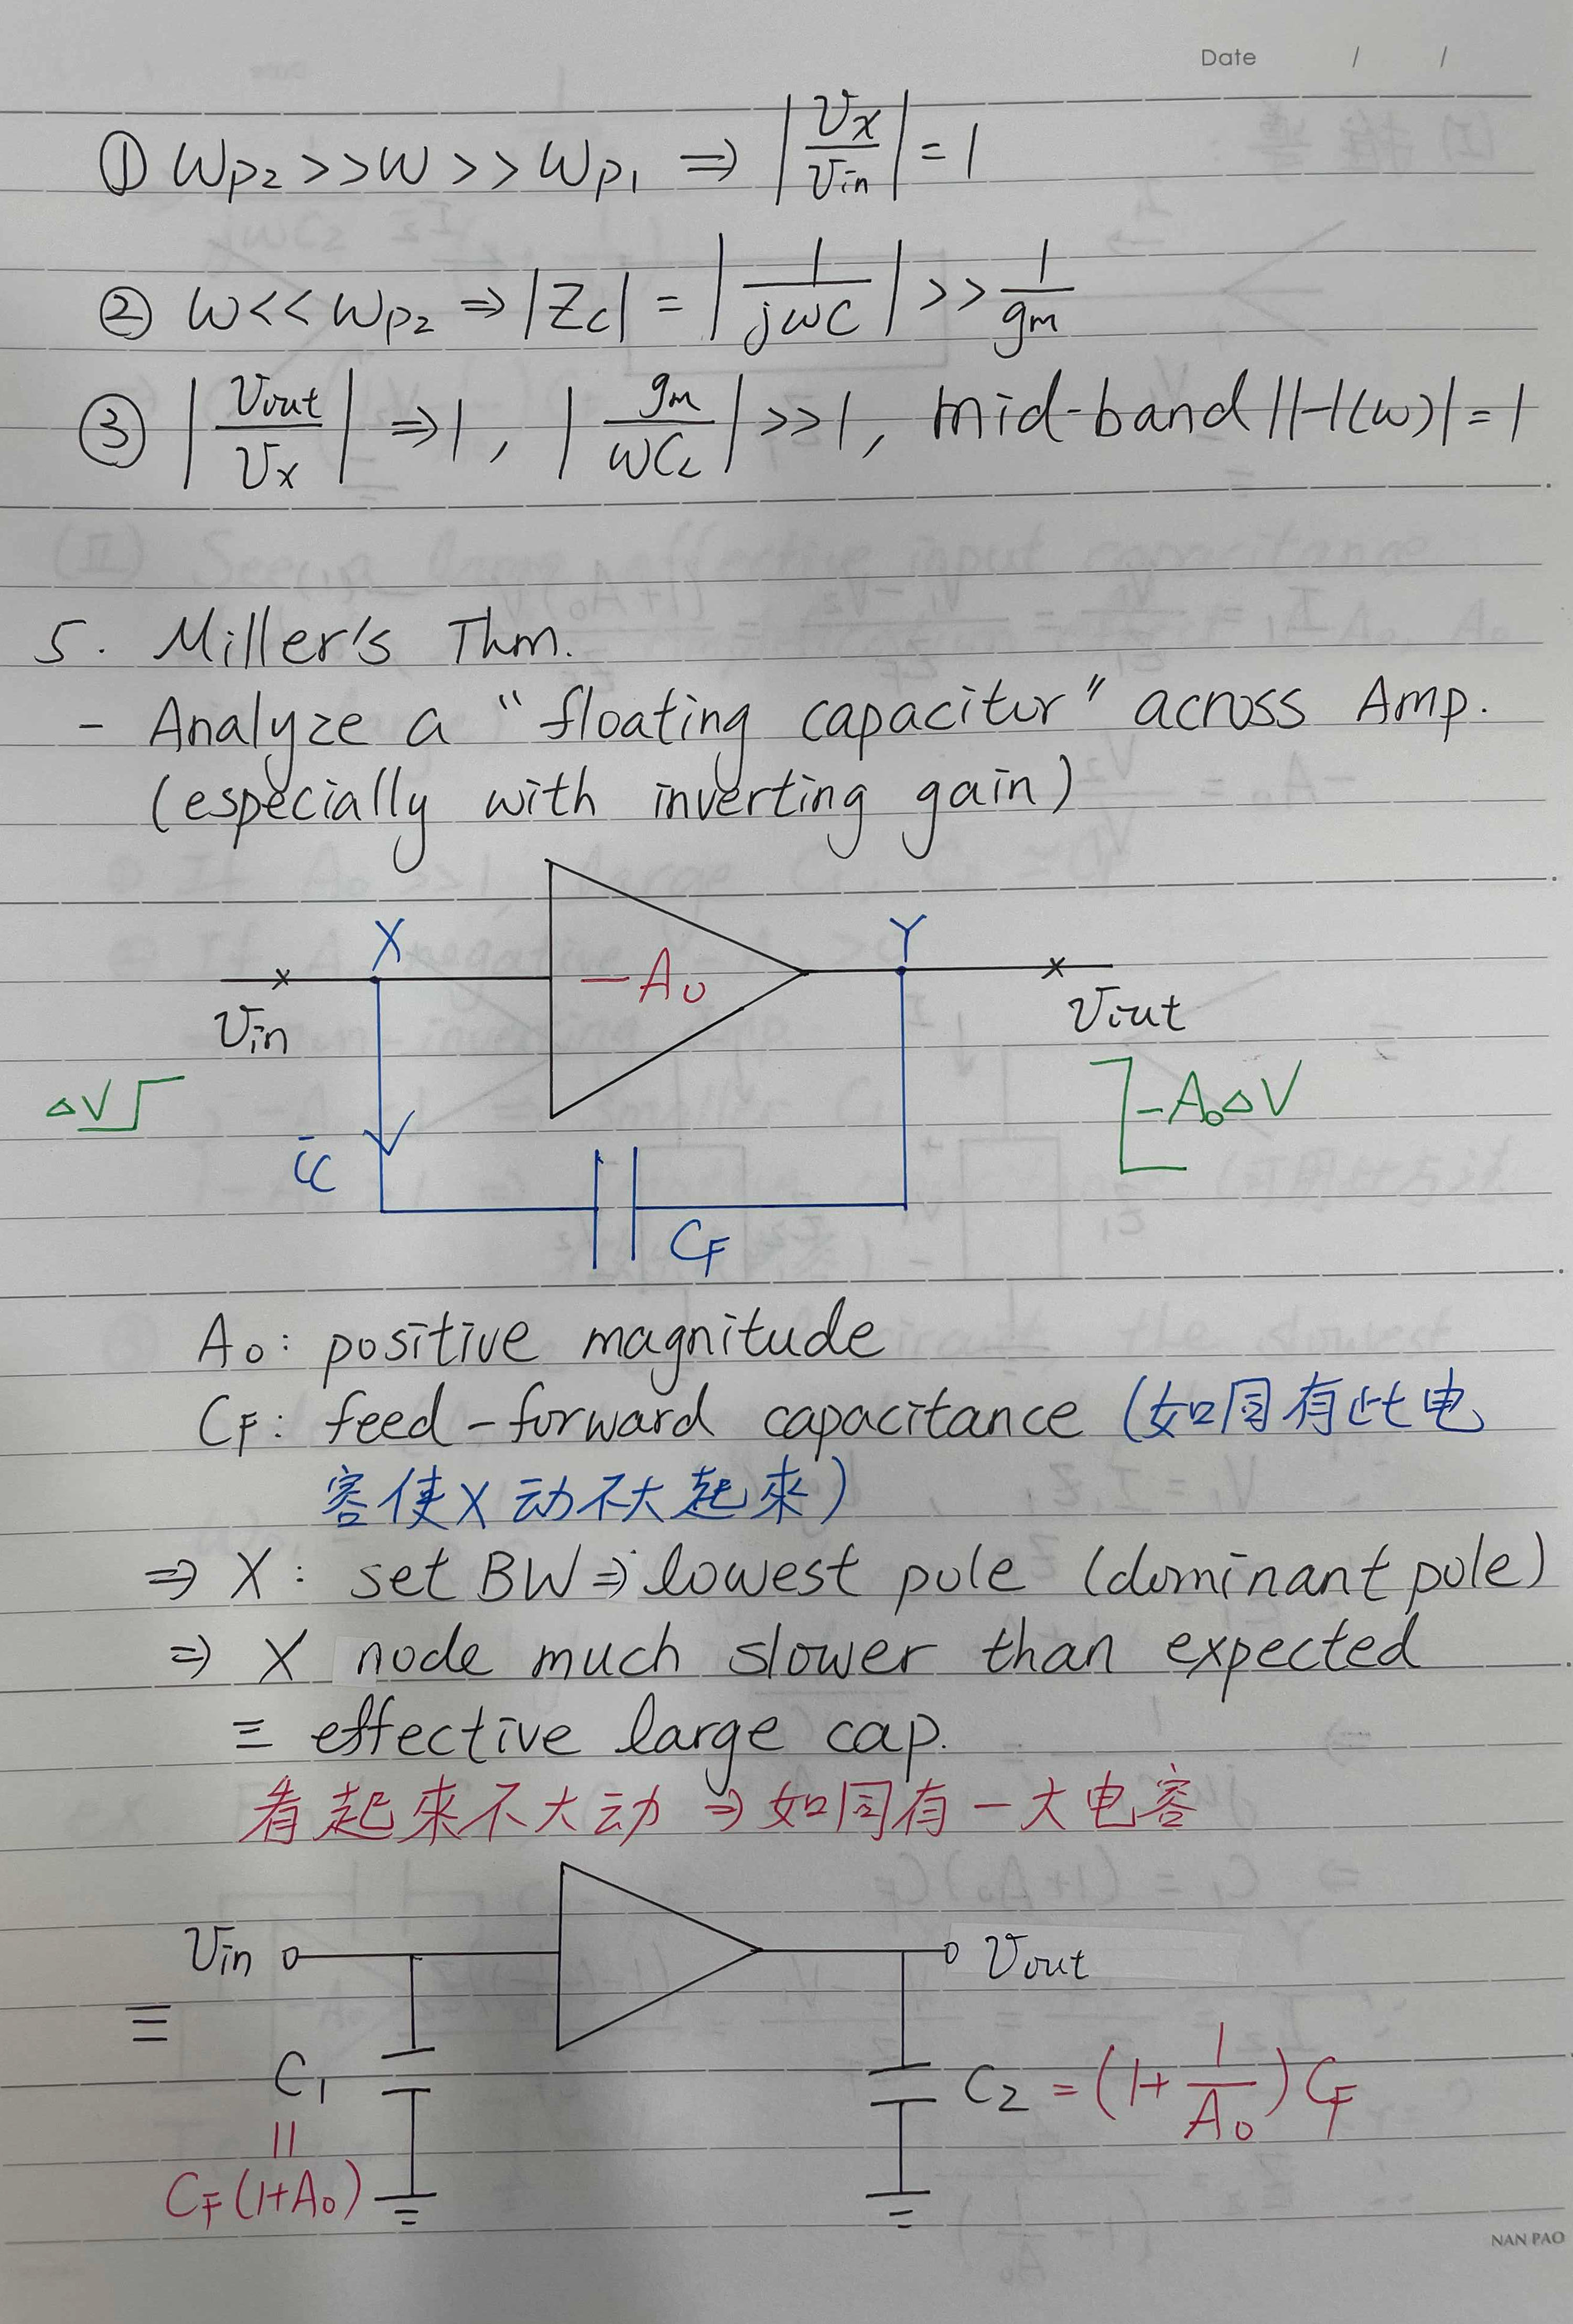 Date / /
① ωp2 >> ω >> ωp1 ⇒ |vx/vin| = 1
② ω << ωp2 ⇒ |Zc| = |1/jωC| >> 1/gm
③ |vout/vx| ⇒ 1, |gm/ωCL| >> 1, mid-band |H(ω)| = 1
5. Miller's Thm.
- Analyze a "floating capacitor" across Amp.
(especially with inverting gain)
X Y
-A0
vin vout
ΔV -A0ΔV
ic
CF
A0: positive magnitude
CF: feed-forward capacitance (如同有此电
容使X动不大起來)
⇒ X: set BW ⇒ lowest pole (dominant pole)
⇒ X node much slower than expected
≡ effective large cap.
看起來不大动 ⇒ 如同有一大电容
vin vout
≡
C1 C2 = (1+1/A0)CF
||
CF(1+A0)
NAN PAO